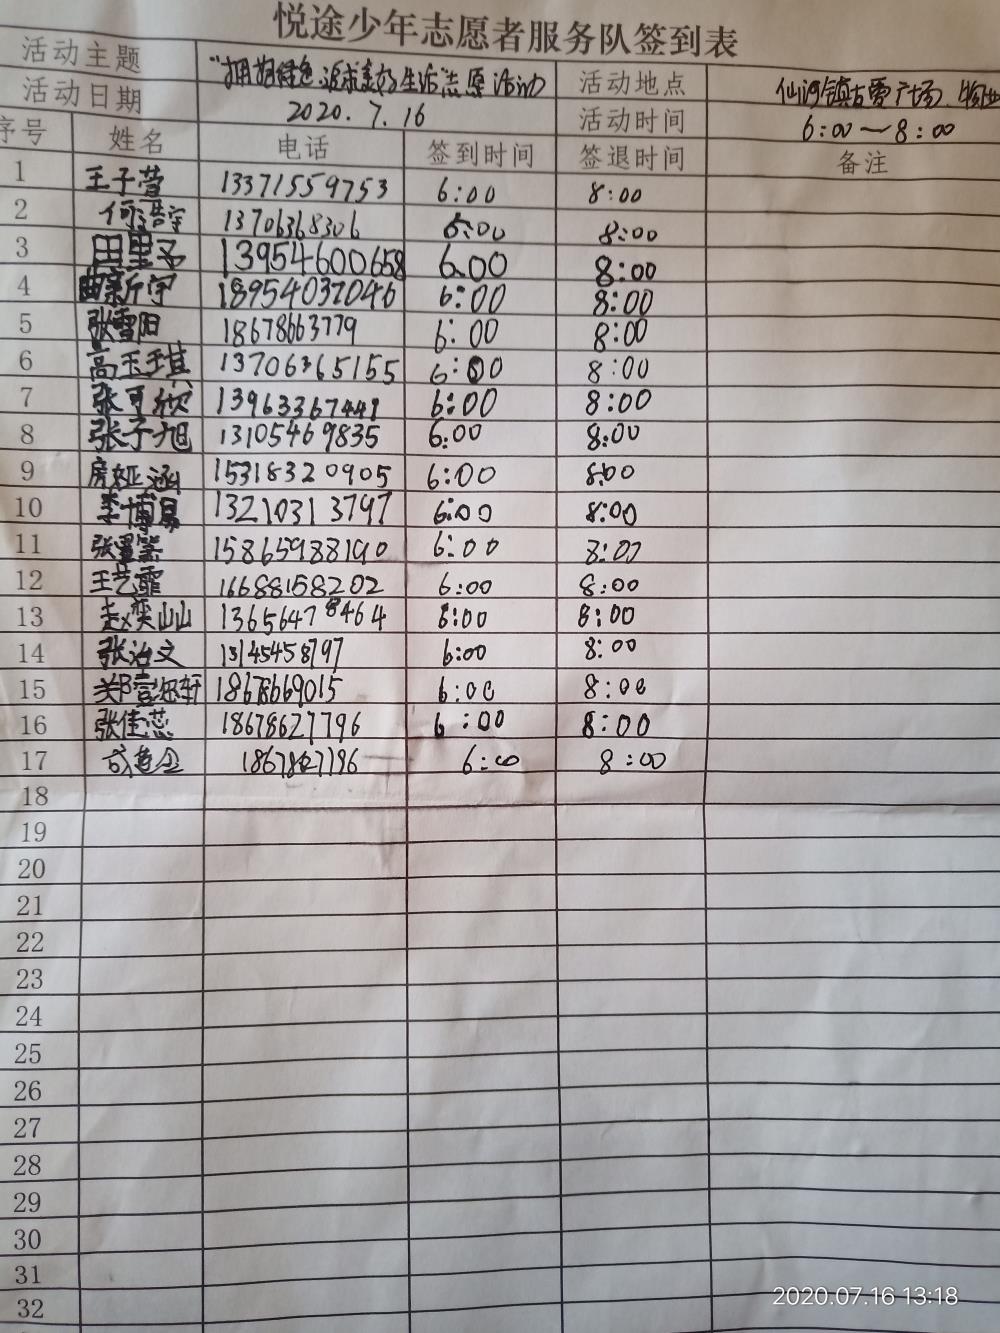 悦途少年志愿者服务队签到表
活动主题 "拥抱绿色 追求美好生活"志愿活动 活动地点 仙河镇古雯广场、物业
活动日期 2020.7.16 活动时间 6:00—8:00
序号 姓名 电话 签到时间 签退时间 备注
1 王子萱 13371559753 6:00 8:00
2 何浩宇 13706368306 6:00 8:00
3 田里予 13954600658 6:00 8:00
4 曲新宇 18954037046 6:00 8:00
5 张雪阳 18678663779 6:00 8:00
6 高玉琪 13706365155 6:00 8:00
7 张可欣 13963367441 6:00 8:00
8 张子旭 13105469835 6:00 8:00
9 房娅涵 15318320905 6:00 8:00
10 李博 13210313797 6:00 8:00
11 张 15865988190 6:00 8:00
12 王艺霏 16688158202 6:00 8:00
13 赵奕山山 13656478464 6:00 8:00
14 张治文 13145458797 6:00 8:00
15 18678669015 6:00 8:00
16 张佳蕊 18678627796 6:00 8:00
17 6:00 8:00
18
19
20
21
22
23
24
25
26
27
28
29
30
31
32
2020.07.16 13:18